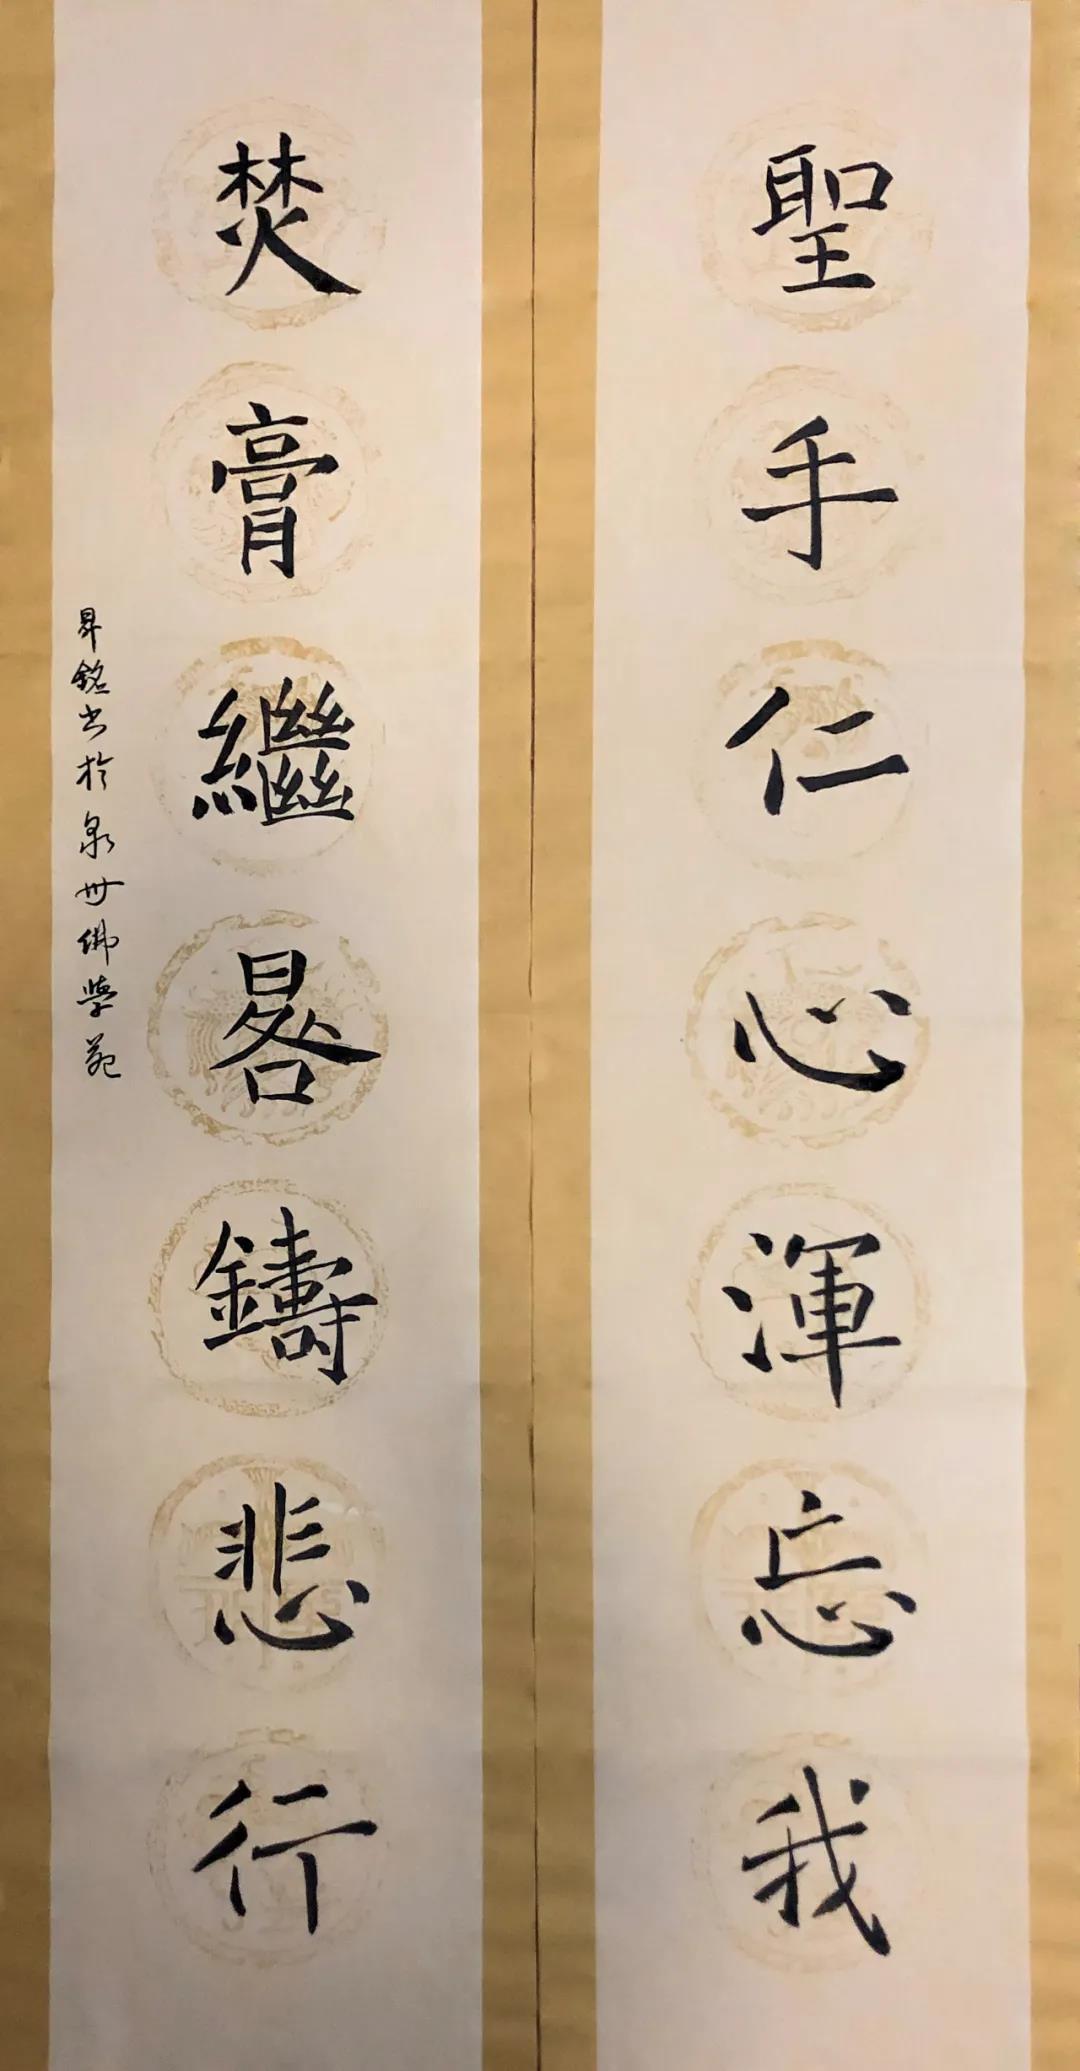 聖手仁心渾忘我
焚膏繼晷鑄悲行
昇銘书於泉州佛學苑